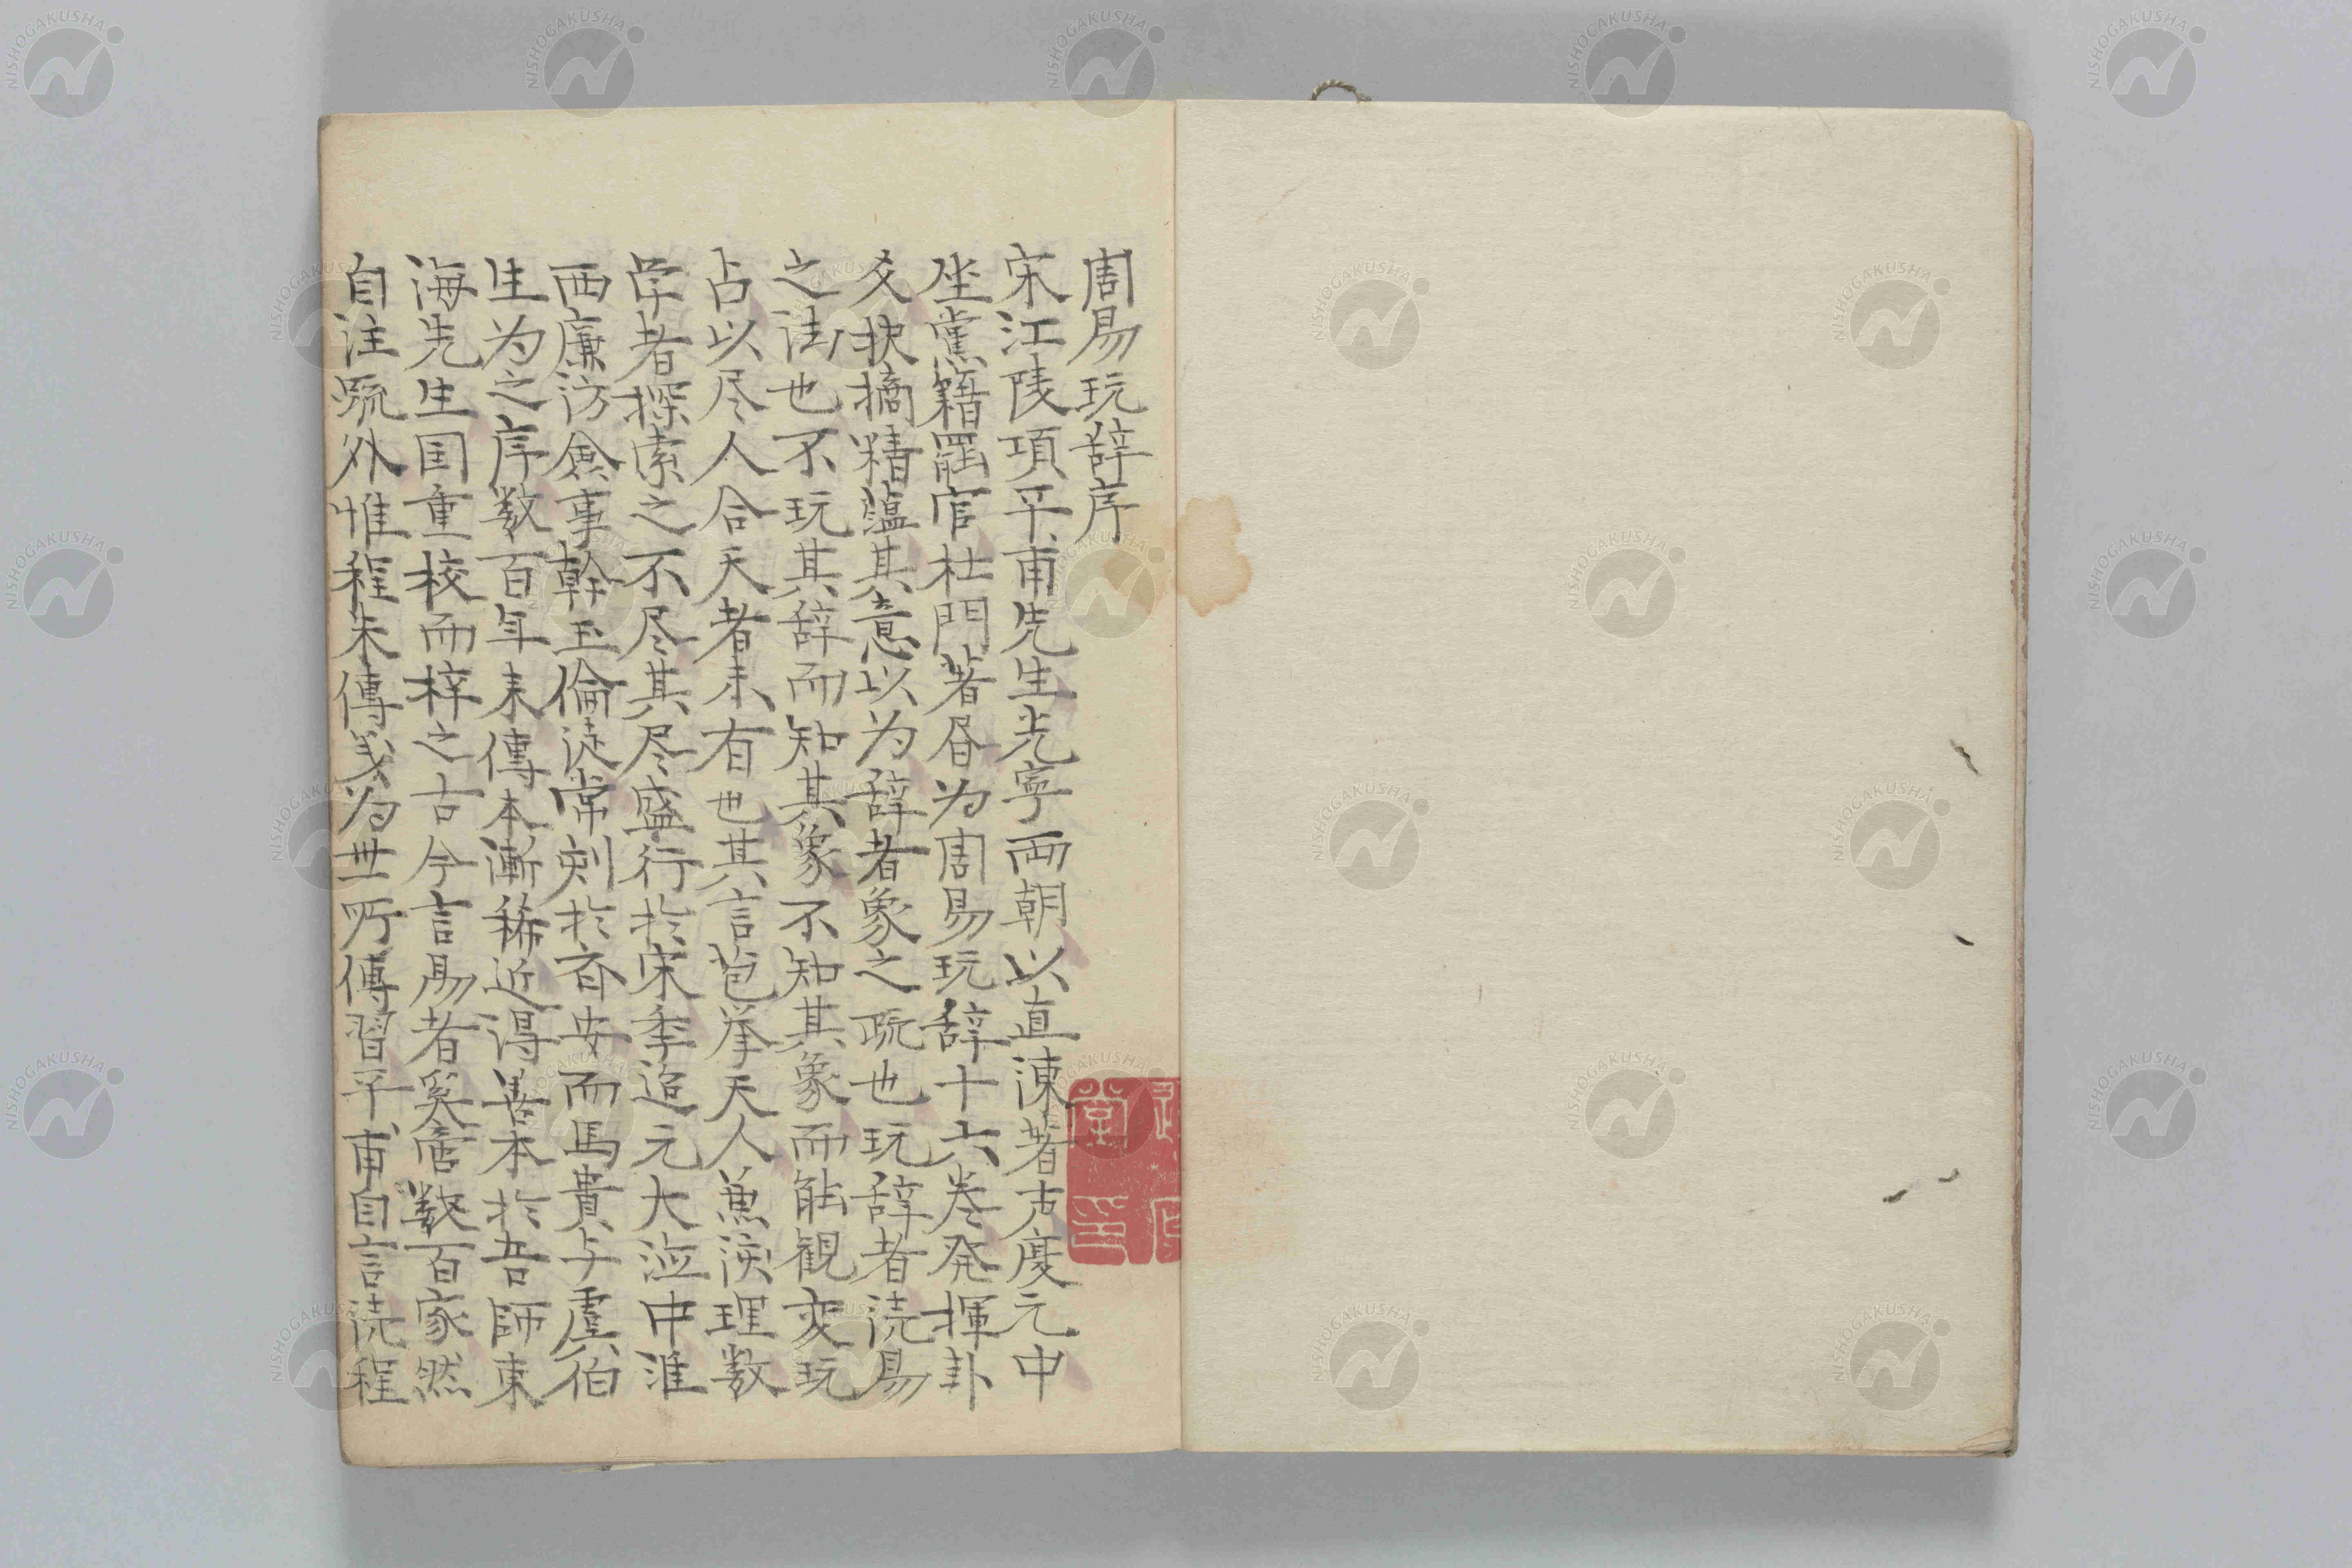 周易玩辞序
宋江陵項平甫先生光寧両朝以直諫著声慶元中
坐黨籍罷官杜門著昼为周易玩辞十六卷発揮卦
爻抉摘精蘊其意以为辞者象之疏也玩辞者読易
之法也不玩其辞而知其象不知其象而能観変玩
占以尽人合天者未有也其言苞挙天人兼演理数
学者探索之不尽其尽盛行於宋季迨元大 中淮
西廉訪僉事幹玉倫徒常刻於斉安而馬貴与虞伯
生为之序数百年来傳本漸稀近得善本於吾師東
海先生国重校而梓之古今言易者奚啻数百家然
自注疏外惟程朱傳义为世所傳習平甫自言読程
堂
印
NISHOGAKUSHA